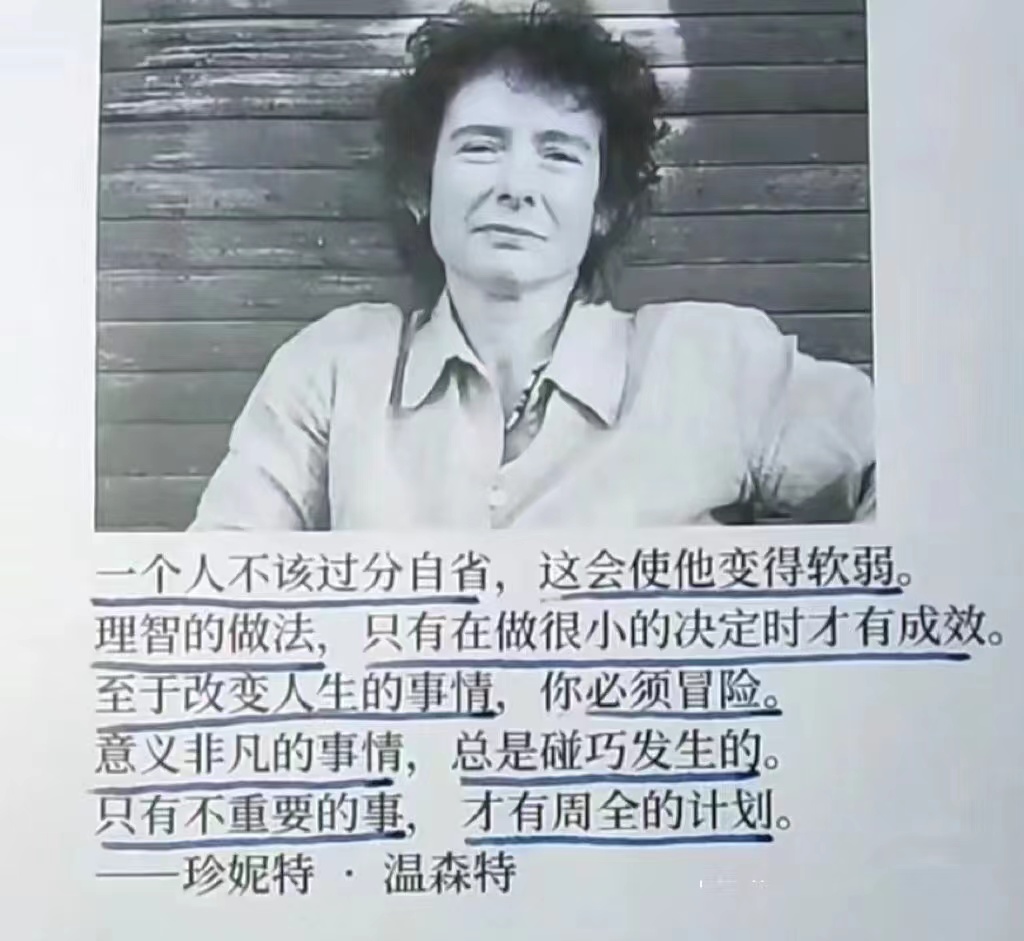 一个人不该过分自省，这会使他变得软弱。
理智的做法，只有在做很小的决定时才有成效。
至于改变人生的事情，你必须冒险。
意义非凡的事情，总是碰巧发生的。
只有不重要的事，才有周全的计划。
——珍妮特 · 温森特